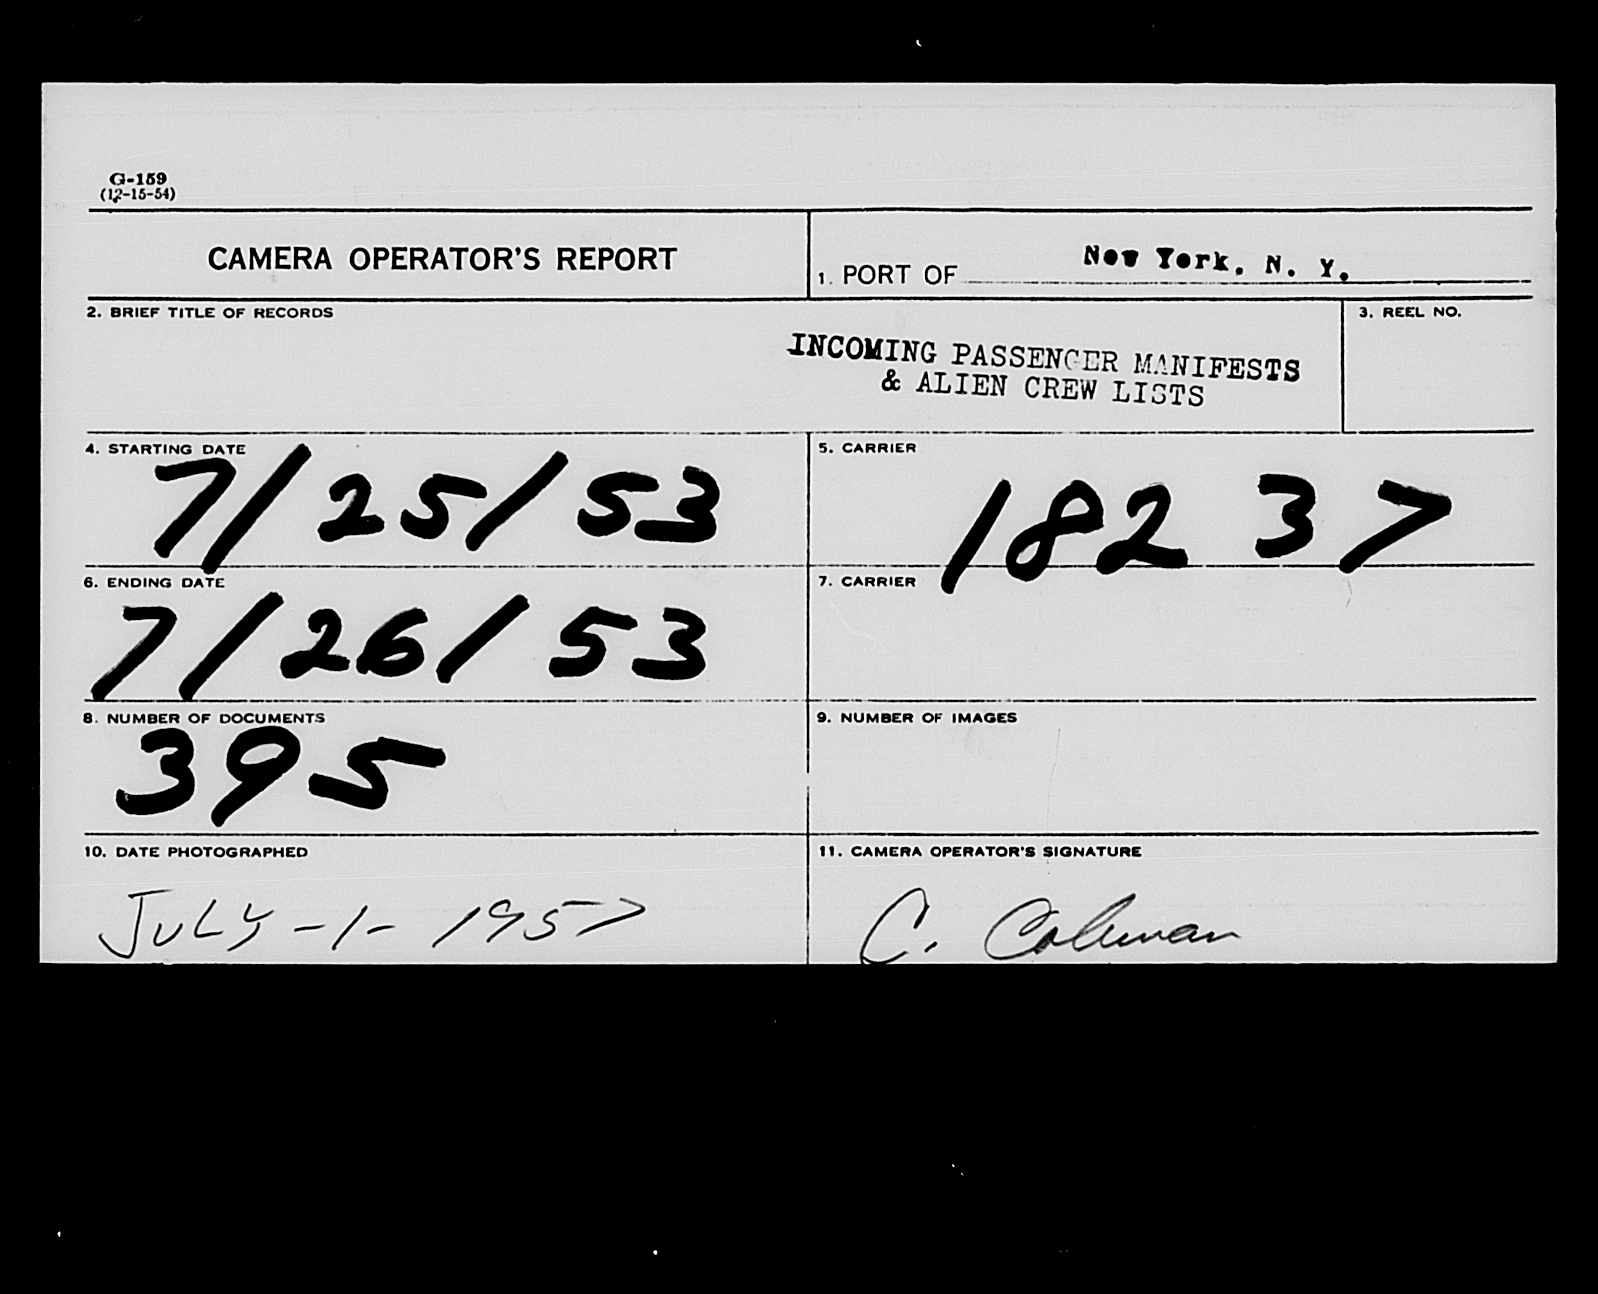 G-159
(12-15-54)
CAMERA OPERATOR'S REPORT
1. PORT OF New York, N. Y.
2. BRIEF TITLE OF RECORDS
INCOMING PASSENGER MANIFESTS
& ALIEN CREW LISTS
3. REEL NO.
4. STARTING DATE
7/25/53
5. CARRIER
18237
6. ENDING DATE
7/26/53
7. CARRIER
8. NUMBER OF DOCUMENTS
395
9. NUMBER OF IMAGES
10. DATE PHOTOGRAPHED
JULY-1-1957
11. CAMERA OPERATOR'S SIGNATURE
C. Coleman